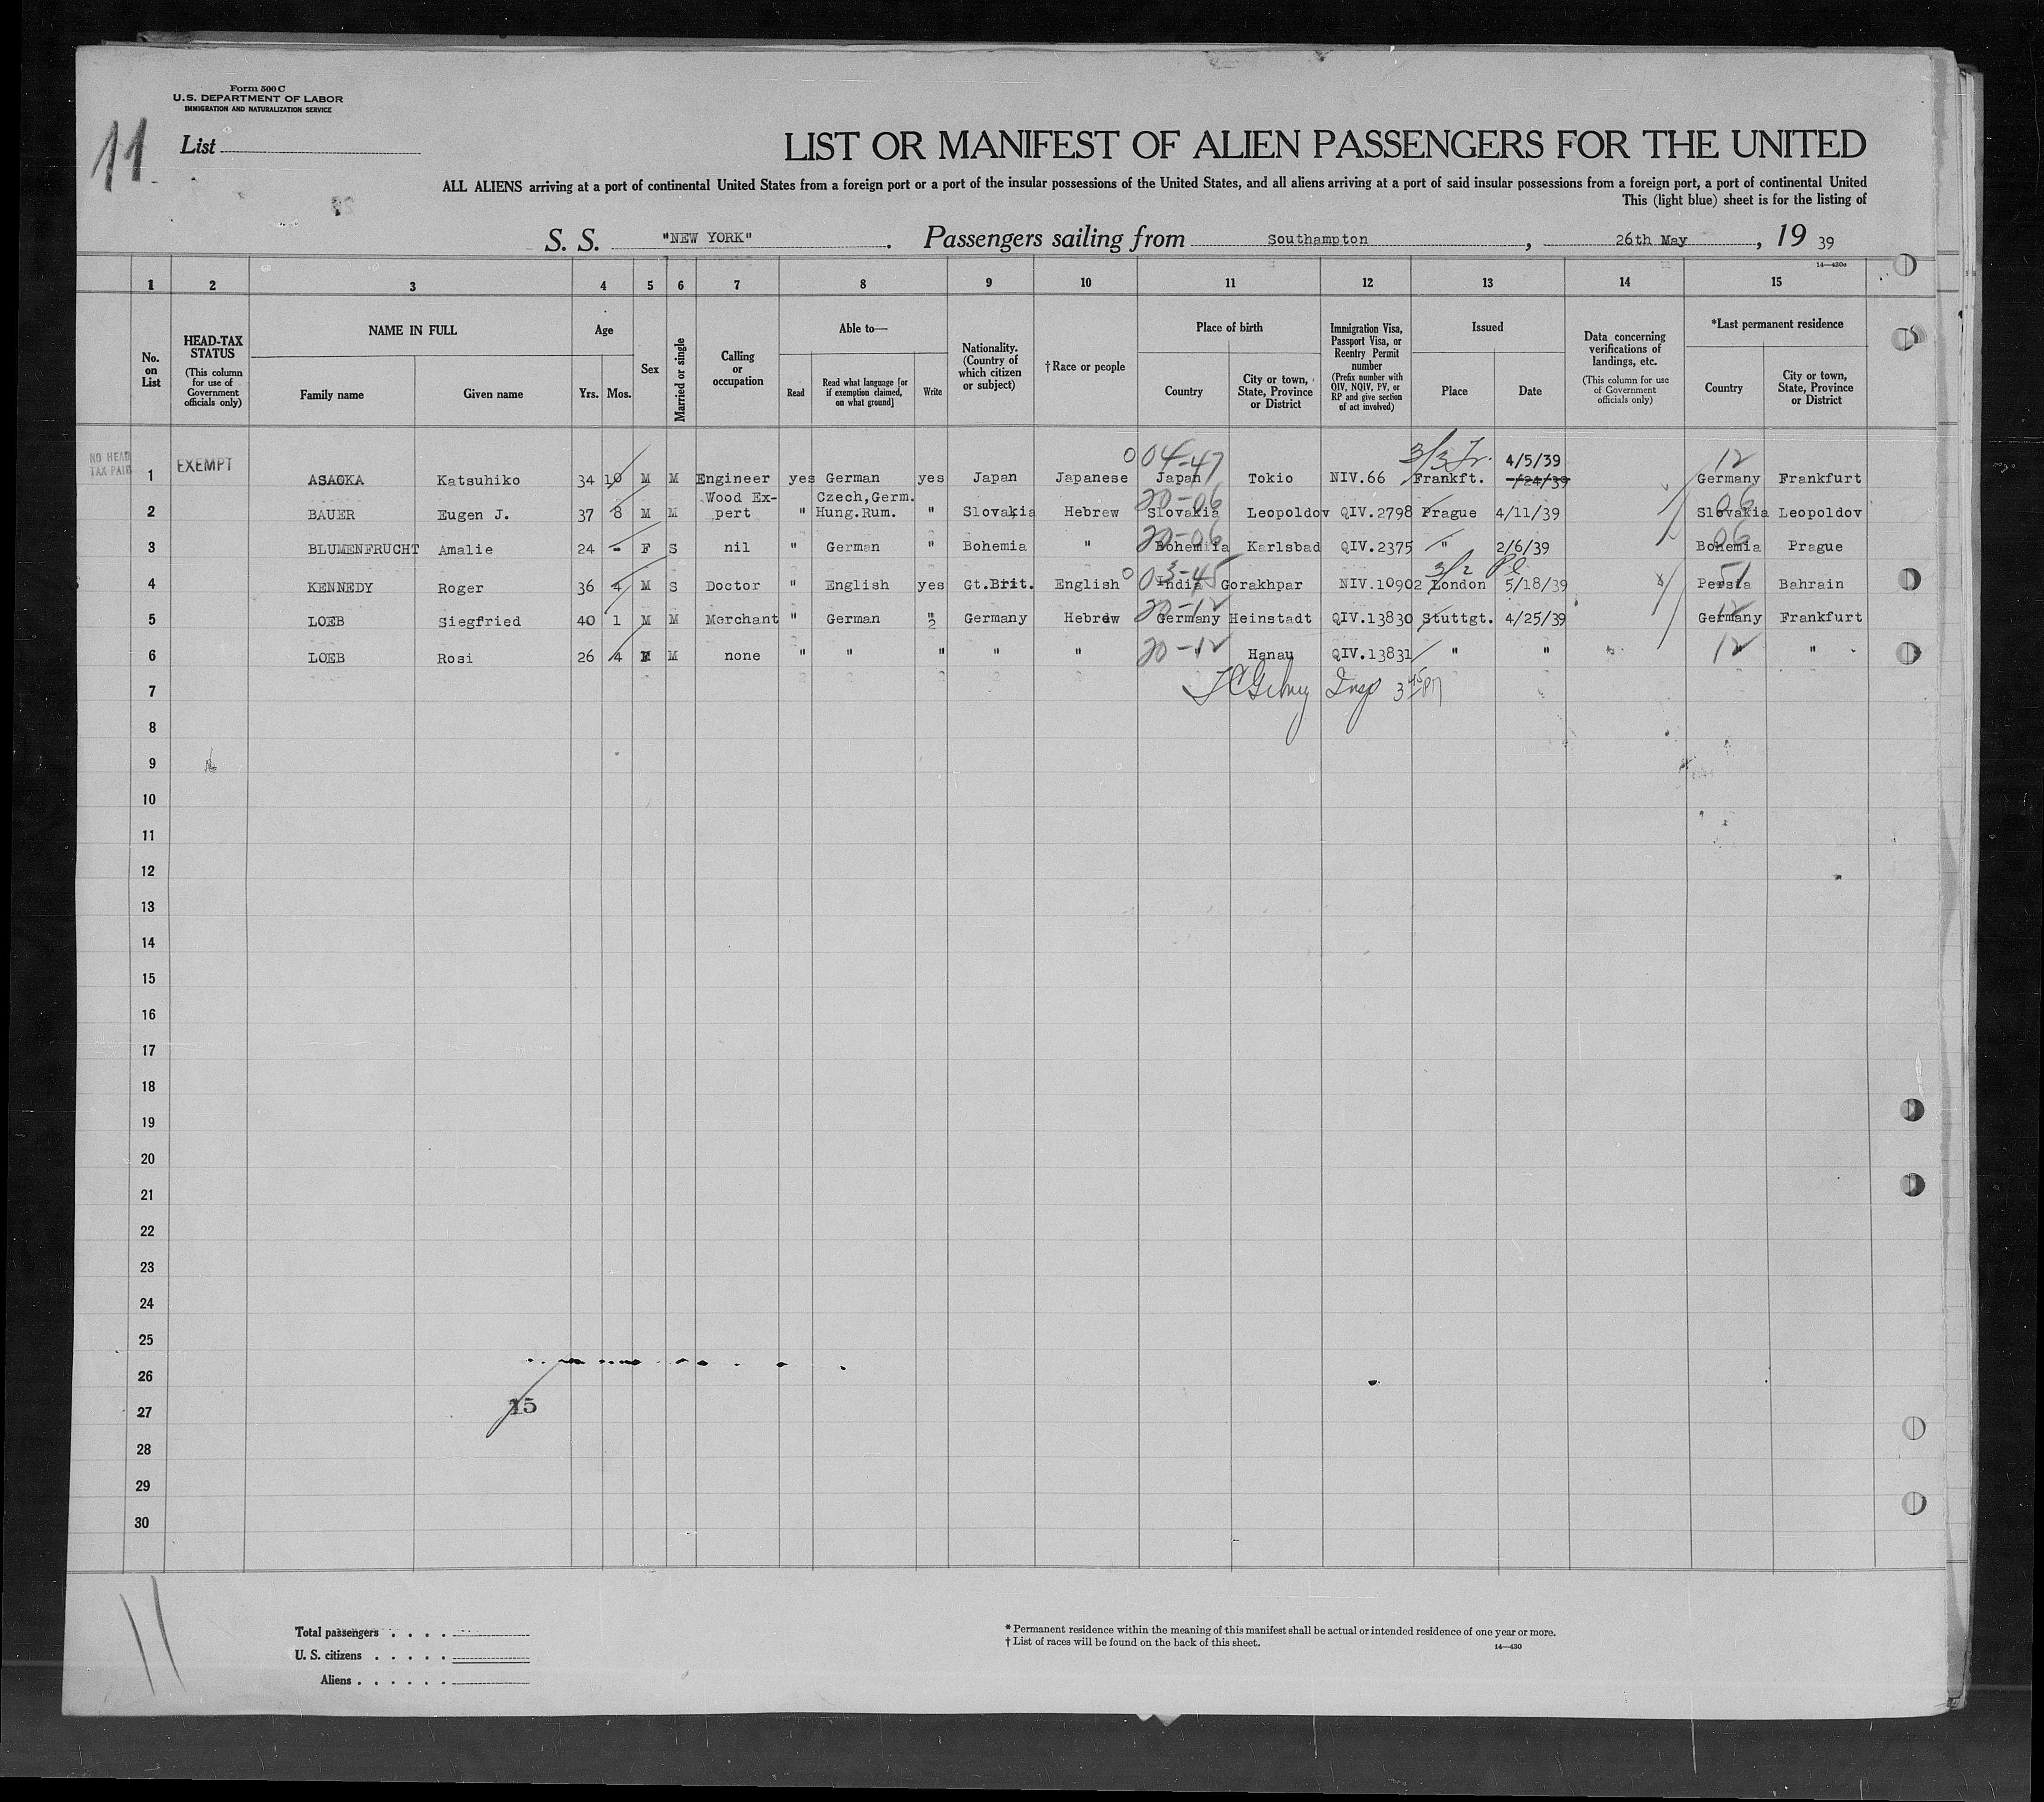 Form 500 C
U.S. DEPARTMENT OF LABOR
IMMIGRATION AND NATURALIZATION SERVICE
11
List
LIST OR MANIFEST OF ALIEN PASSENGERS FOR THE UNITED
ALL ALIENS arriving at a port of continental United States from a foreign port or a port of the insular possessions of the United States, and all aliens arriving at a port of said insular possessions from a foreign port, a port of continental United
This (light blue) sheet is for the listing of
S. S. "NEW YORK". Passengers sailing from Southampton, 26th May, 19 39
14—430c
1 2 3 4 5 6 7 8 9 10 11 12 13 14 15
No. on List
HEAD-TAX STATUS
(This column for use of Government officials only)
NAME IN FULL
Family name Given name
Age
Yrs. Mos.
Sex
Married or single
Calling or occupation
Able to—
Read
Read what language [or if exemption claimed, on what ground]
Write
Nationality. (Country of which citizen or subject)
†Race or people
Place of birth
Country
City or town, State, Province or District
Immigration Visa, Passport Visa, or Reentry Permit number
(Prefix number with QIV, NQIV, PV, or RP and give section of act involved)
Issued
Place Date
Data concerning verifications of landings, etc.
(This column for use of Government officials only)
*Last permanent residence
Country
City or town, State, Province or District
NO HEAD TAX PAID
EXEMPT
04-47
3/3 4/5/39 12
1 ASAOKA Katsuhiko 34 10 M M Engineer yes German yes Japan Japanese Japan Tokio NIV.66 Frankft. Germany Frankfurt
Wood Ex- Czech,Germ. 20-06 06
2 BAUER Eugen J. 37 8 M M pert " Hung.Rum. " Slovakia Hebrew Slovakia Leopoldov QIV.2798 Prague 4/11/39 Slovakia Leopoldov
20-06 06
3 BLUMENFRUCHT Amalie 24 - F S nil " German " Bohemia " Bohemia Karlsbad QIV.2375 " 2/6/39 Bohemia Prague
03-45 3/2 51
4 KENNEDY Roger 36 4 M S Doctor " English yes Gt.Brit. English India Gorakhpar NIV.10902 London 5/18/39 Persia Bahrain
20-12 12
5 LOEB Siegfried 40 1 M M Merchant " German " Germany Hebrew Germany Heinstadt QIV.13830 Stuttgt. 4/25/39 Germany Frankfurt
20-12 12
6 LOEB Rosi 26 4 F M none " " " " " " Hanau QIV.13831 " " "
7 Insp 3 45 PM
8
9
10
11
12
13
14
15
16
17
18
19
20
21
22
23
24
25
26
27
15
28
29
30
11
Total passengers . . . .
U. S. citizens . . . . .
Aliens . . . . . .
* Permanent residence within the meaning of this manifest shall be actual or intended residence of one year or more.
† List of races will be found on the back of this sheet.
14—430